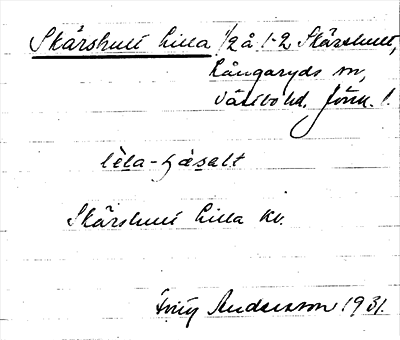 Skärshult Lilla 1/2 å 1-2 Skärshult,
Långaryds sn,
Västbo hd. Jönk. l.
Skärshult Lilla kv.
Andersson 1931.